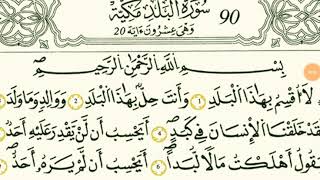 سُورَةُ الْبَلَدِ مَكِّيَّةٌ 90
وَهِيَ عِشْرُونَ آيَةً 20
بِسْمِ اللَّهِ الرَّحْمَٰنِ الرَّحِيمِ
لَا أُقْسِمُ بِهَٰذَا الْبَلَدِ 1 وَأَنتَ حِلٌّ بِهَٰذَا الْبَلَدِ 2 وَوَالِدٍ وَمَا وَلَدَ
لَقَدْ خَلَقْنَا الْإِنسَانَ فِي كَبَدٍ 4 أَيَحْسَبُ أَن لَّن يَقْدِرَ عَلَيْهِ أَحَدٌ
يَقُولُ أَهْلَكْتُ مَالًا لُّبَدًا 6 أَيَحْسَبُ أَن لَّمْ يَرَهُ أَحَدٌ